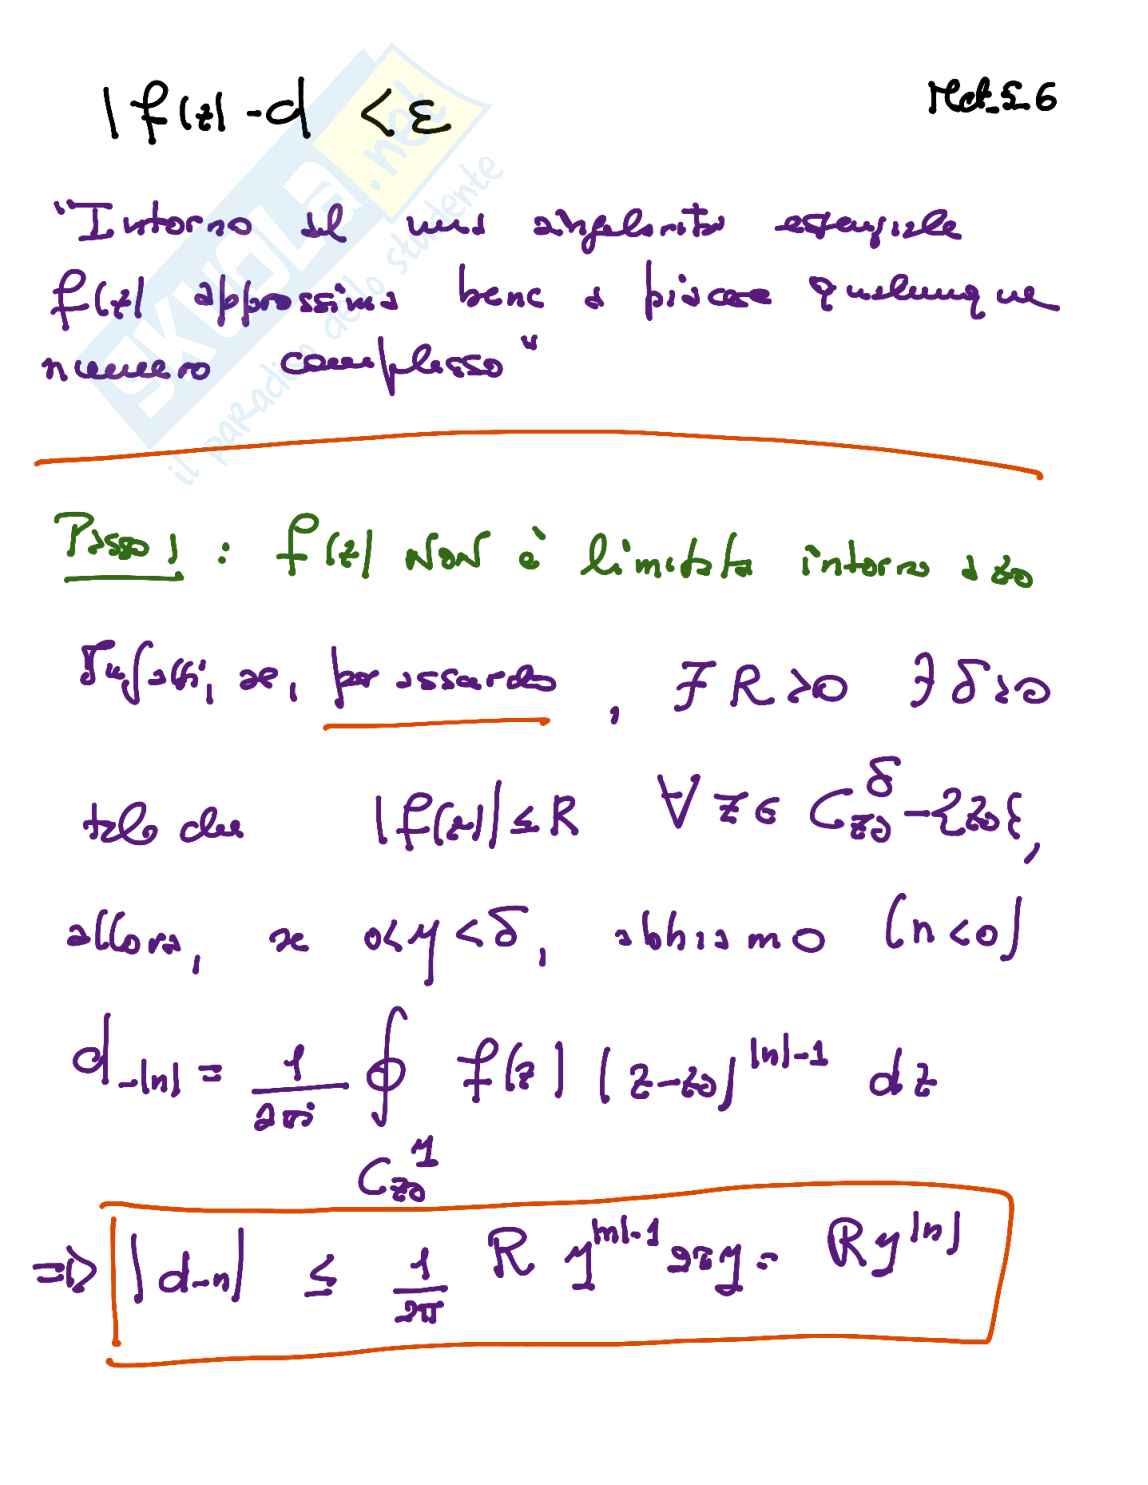 |f(z)-d| <ε
Met_5_6
"Intorno ad una singolarità essenziale
f(z) approssima bene a piacere qualunque
numero complesso"
SKUOLA.net
il paradiso dello studente
Passo 1 : f(z) NON è limitata intorno a z₀
Infatti, se, per assurdo, ∃ R>0 ∃ δ>0
tale che |f(z)| ≤ R ∀ z ∈ C_{z₀}^δ - {z₀},
allora, se 0<η<δ, abbiamo (n<0)
d_{-|n|} = 1/2πi ∮_{C_{z₀}^η} f(z) (z-z₀)^{|n|-1} dz
=> |d_{-n}| ≤ 1/2π R η^{|n|-1} 2πη = R η^{|n|}